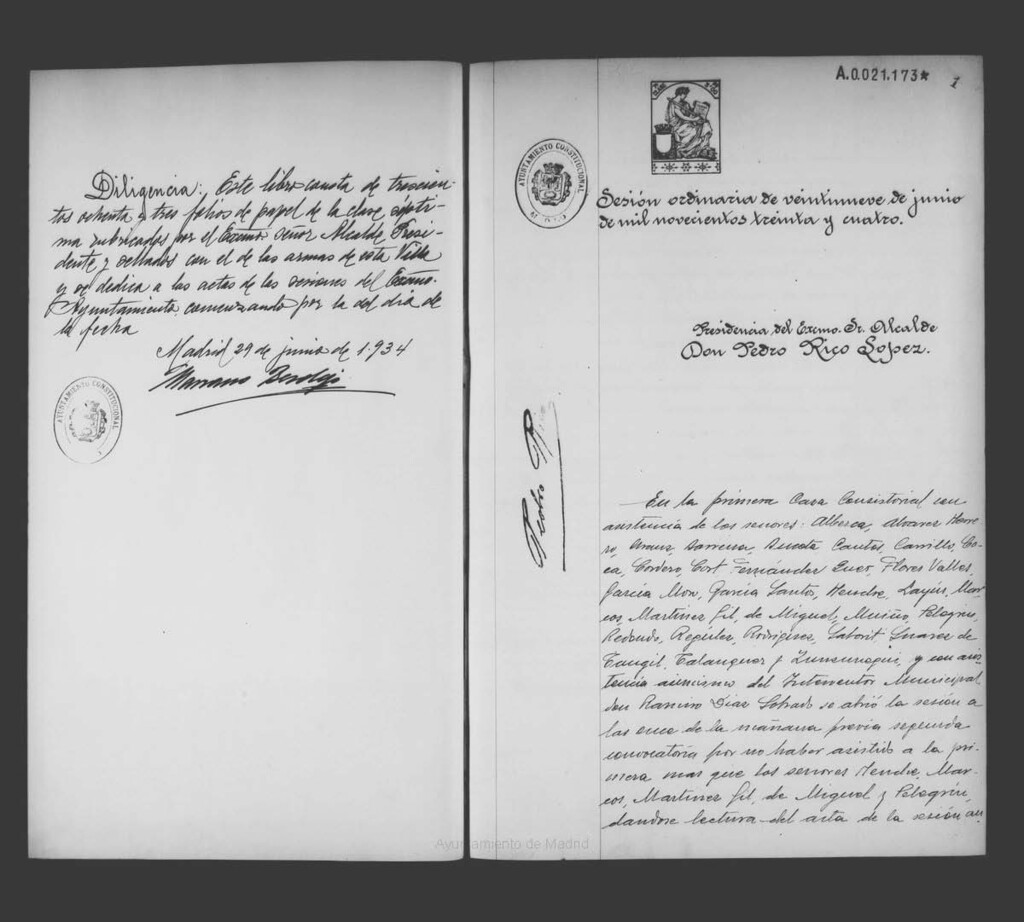 Diligencia: Este libro consta de trescien-
tos ochenta y tres folios de papel de la clase septi-
ma rubricados por el Excmo. señor Alcalde Presi-
dente y sellados con el de las armas de esta Villa
y se dedica a las actas de las sesiones del Excmo.
Ayuntamiento comenzando por la del dia de
la fecha
Madrid 29 de junio de 1.934
Mariano Berdejo
AYUNTAMIENTO CONSTITUCIONAL
A.0.021.173*
1
AYUNTAMIENTO CONSTITUCIONAL
MADRID
Sesión ordinaria de veintinueve de junio
de mil novecientos treinta y cuatro.
Presidencia del Excmo. Sr. Alcalde
Don Pedro Rico López.
Pedro Rico
En la primera Casa Consistorial con
asistencia de los señores: Alberca, Alvarez Herre-
ro, Arauz, Barrena, Cantos, Carrillo, Co-
ca, Cordero, Cort, Fernández Quer, Flores Valles,
García Moro, García Santos, Henche, Layús, Mar-
cos, Martínez Gil, de Miguel, Muiño, Pelegrín,
Redondo, Regúlez, Rodríguez, Saborit, Suarez de
Tangil, Talanquer y Zunzunegui, y con asis-
tencia asimismo del Interventor Municipal
don Ramiro Díaz Sobrado se abrió la sesión a
las once de la mañana previa segunda
convocatoria por no haber asistido a la pri-
mera mas que los señores Henche, Mar-
cos, Martínez Gil, de Miguel y Pelegrín,
dandose lectura del acta de la sesión an
Ayuntamiento de Madrid